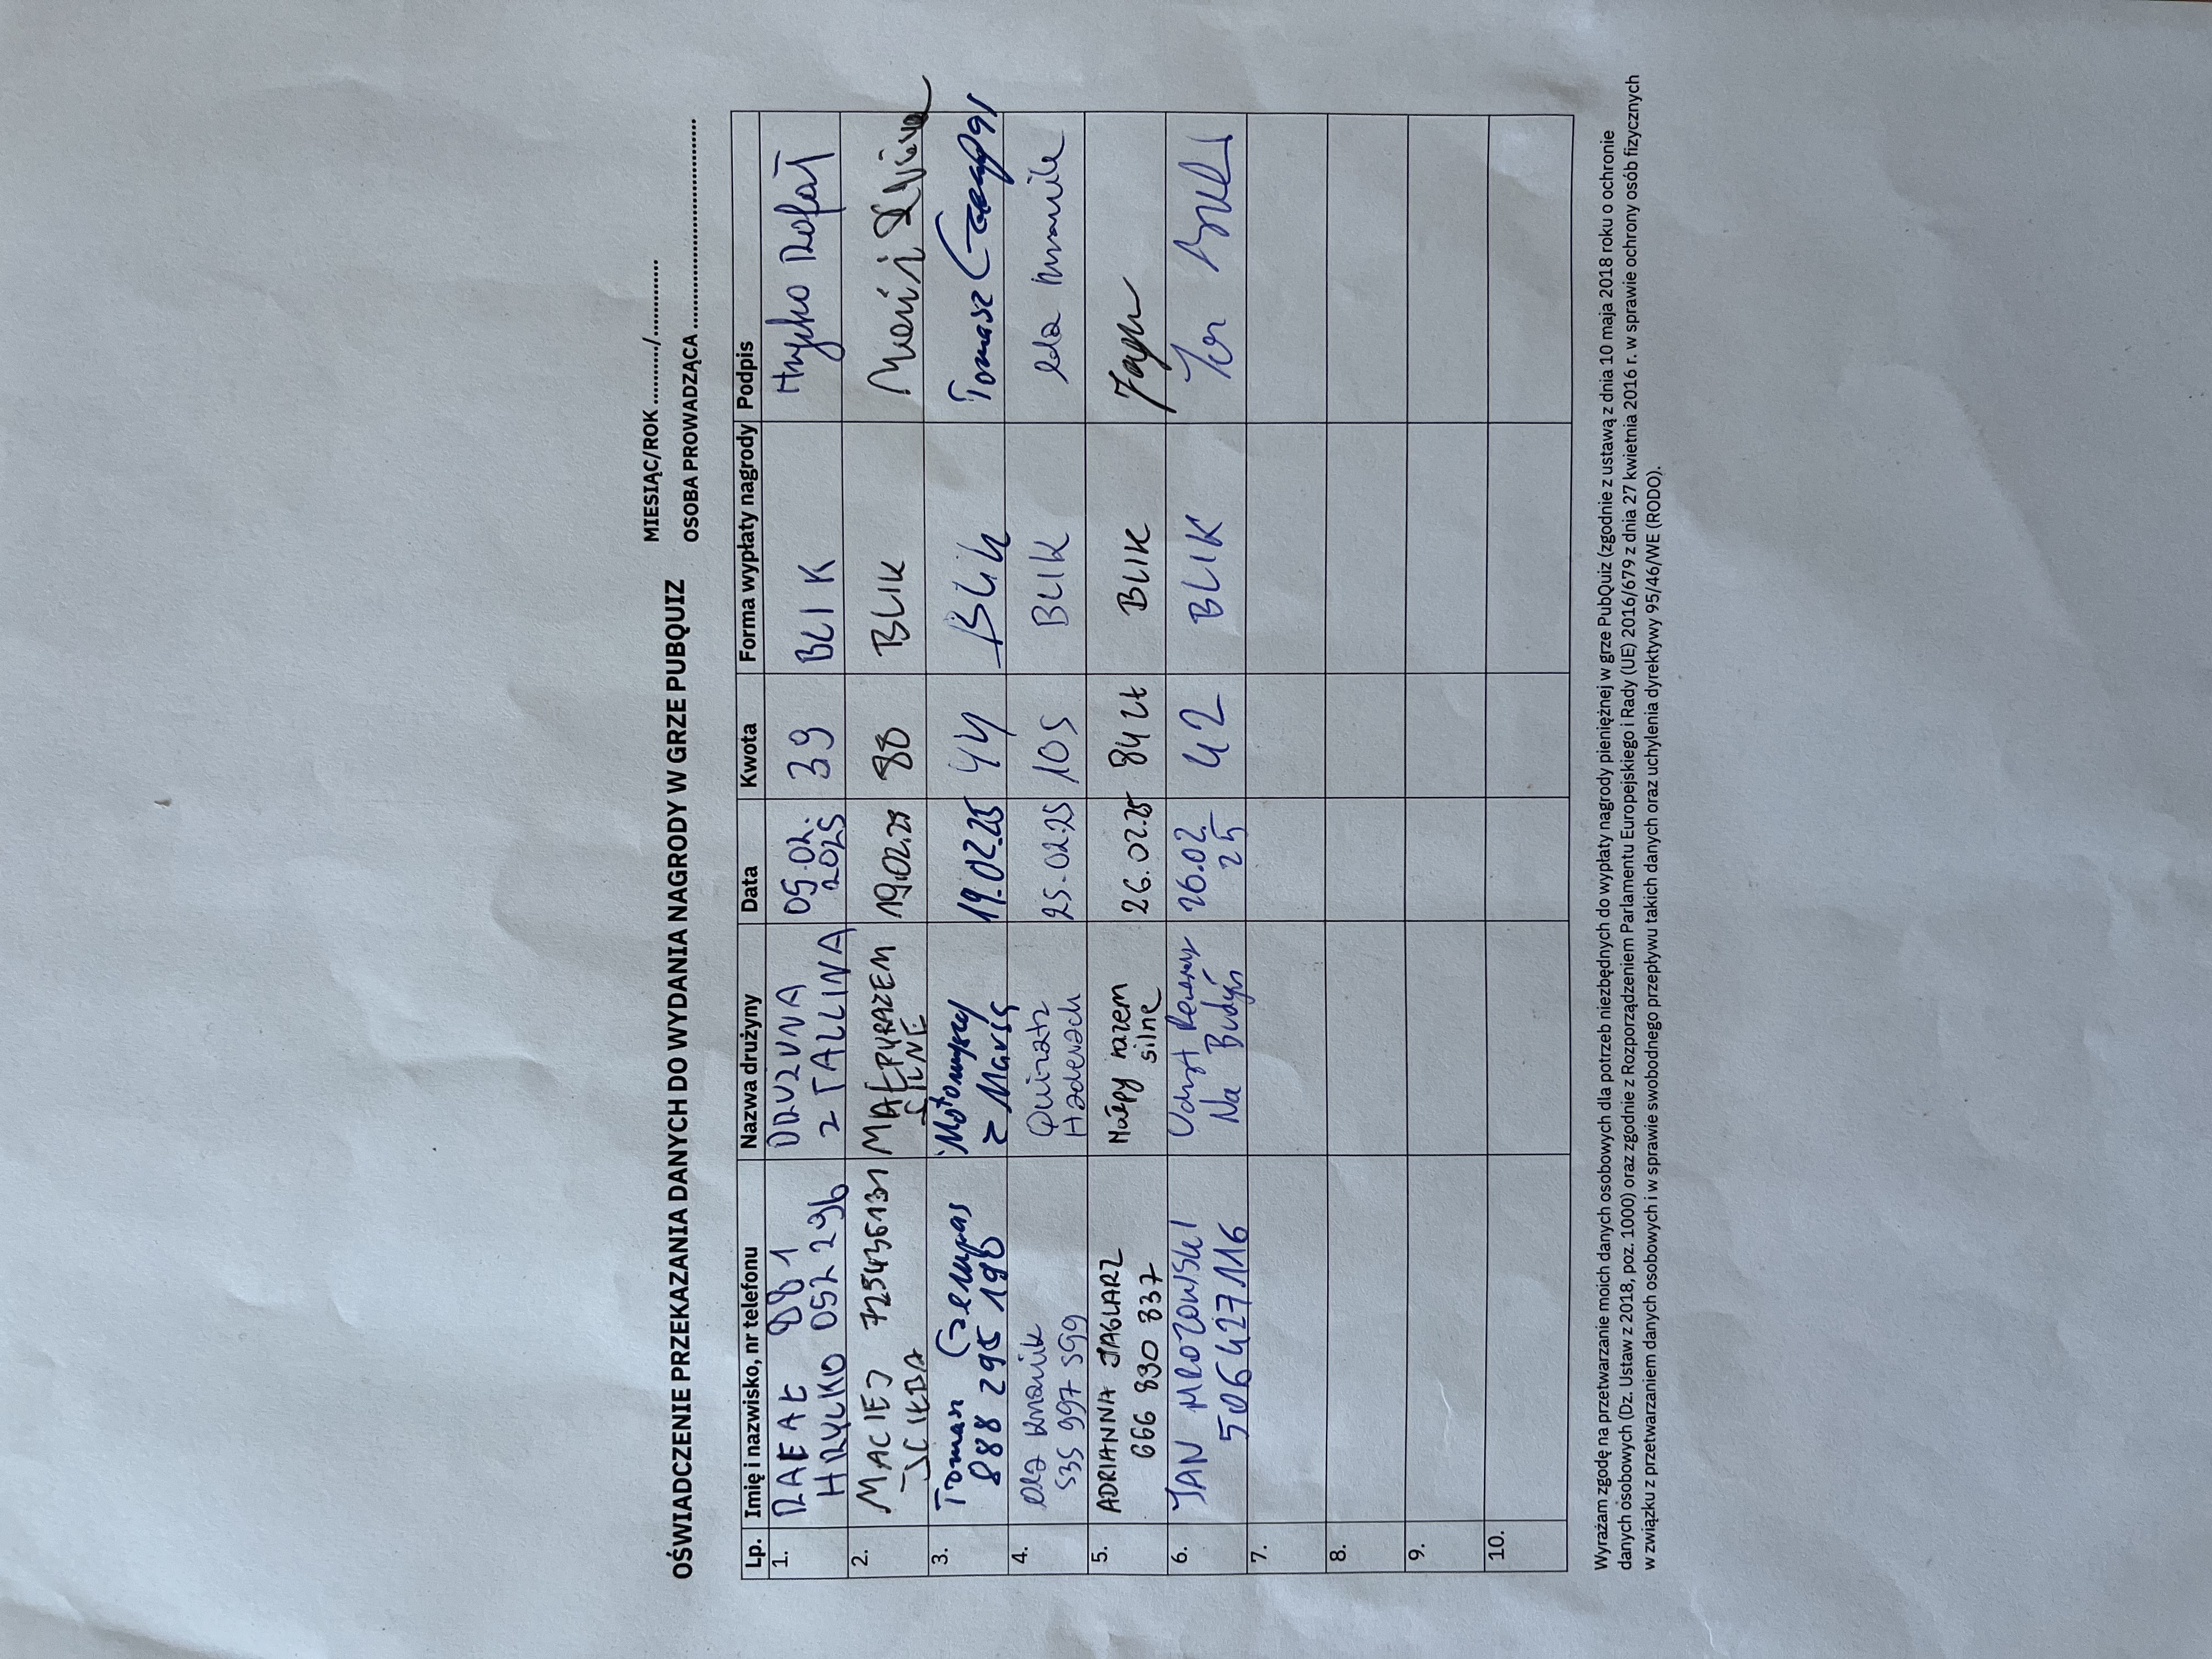 MIESIĄC/ROK ........../..........
OŚWIADCZENIE PRZEKAZANIA DANYCH DO WYDANIA NAGRODY W GRZE PUBQUIZ
OSOBA PROWADZĄCA ........................................
Lp. Imię i nazwisko, nr telefonu Nazwa drużyny Data Kwota Forma wypłaty nagrody Podpis
1. RAFAŁ 881 HRYCKO 052 296 DRUŻYNA Z TALLINA 05.02.2025 39 BLIK Hrycko Rafał
2. MACIEJ 725436131 MAŁPY RAZEM SILNE 19.02.25 88 BLIK Maciej
3. Tomasz Czempas 888 295 190 Motomyszy z Marsa 19.02.25 44 Blik Tomasz
4. Ola 535 997 599 Quizatz Haderach 25.02.25 105 BLIK Ola
5. ADRIANNA JAGLARZ 666 830 337 Małpy razem silne 26.02.25 84 zł BLIK
6. JAN MROZOWSKI 506427116 Na Budyń 26.02.25 42 BLIK
7.
8.
9.
10.
Wyrażam zgodę na przetwarzanie moich danych osobowych dla potrzeb niezbędnych do wypłaty nagrody pieniężnej w grze PubQuiz (zgodnie z ustawą z dnia 10 maja 2018 roku o ochronie
danych osobowych (Dz. Ustaw z 2018, poz. 1000) oraz zgodnie z Rozporządzeniem Parlamentu Europejskiego i Rady (UE) 2016/679 z dnia 27 kwietnia 2016 r. w sprawie ochrony osób fizycznych
w związku z przetwarzaniem danych osobowych i w sprawie swobodnego przepływu takich danych oraz uchylenia dyrektywy 95/46/WE (RODO).